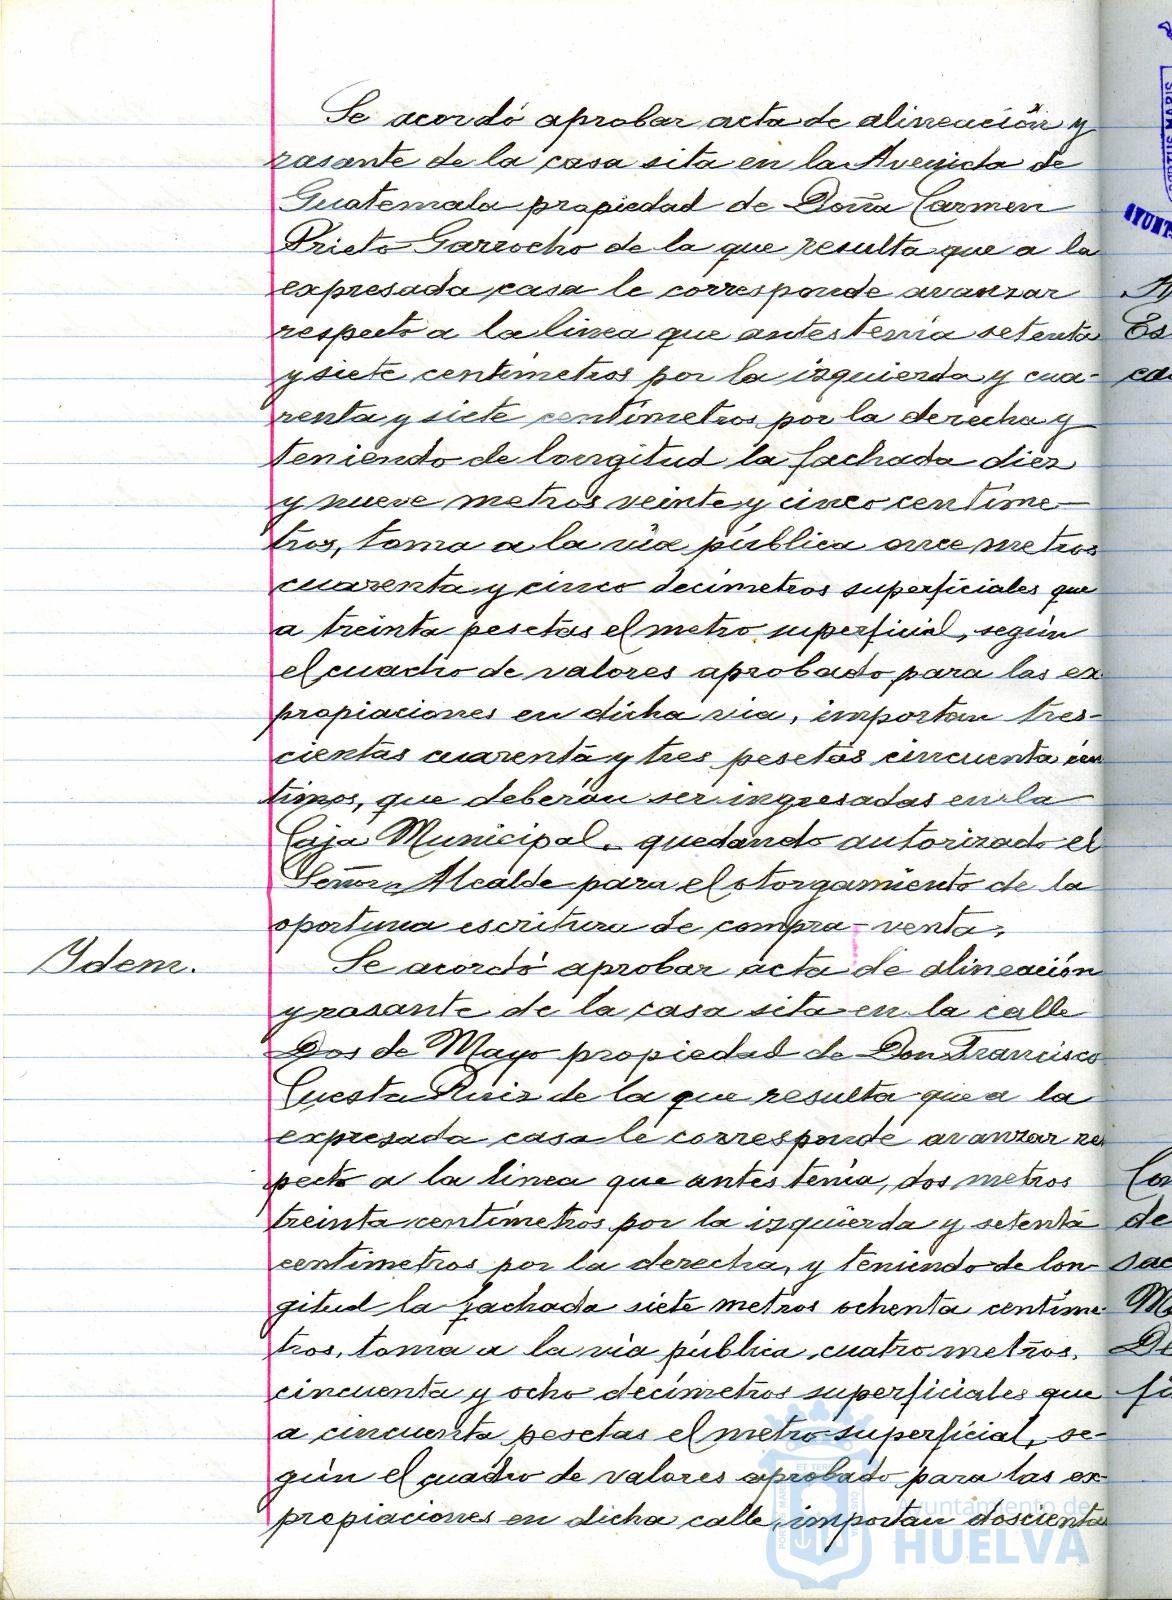 Se acordó aprobar acta de alineación y
rasante de la casa sita en la Avenida de
Guatemala propiedad de Doña Carmen
Prieto Garrocho de la que resulta que a la
expresada casa le corresponde avanzar
respecto a la linea que antes tenía setenta
y siete centímetros por la izquierda y cua-
renta y siete centímetros por la derecha y
teniendo de longitud la fachada diez
y nueve metros veinte y cinco centíme-
tros, toma a la vía pública once metros
cuarenta y cinco decímetros superficiales que
a treinta pesetas el metro superficial, según
el cuadro de valores aprobado para las ex
propiaciones en dicha via, importan tres-
cientas cuarenta y tres pesetas cincuenta cén
timos, que deberán ser ingresadas en la
Caja Municipal, quedando autorizado el
Señor Alcalde para el otorgamiento de la
oportuna escritura de compra-venta.
Idem.
Se acordó aprobar acta de alineación
y rasante de la casa sita en la calle
Dos de Mayo propiedad de Don Francisco
Cuesta Ruiz de la que resulta que a la
expresada casa le corresponde avanzar res
pecto a la linea que antes tenía, dos metros
treinta centímetros por la izquierda y setenta
centímetros por la derecha, y teniendo de lon
gitud la fachada siete metros ochenta centíme
tros, toma a la vía pública cuatro metros,
cincuenta y ocho decímetros superficiales que
a cincuenta pesetas el metro superficial, se-
gún el cuadro de valores aprobado para las ex-
propiaciones en dicha calle, importan doscientas
Ayuntamiento de
HUELVA